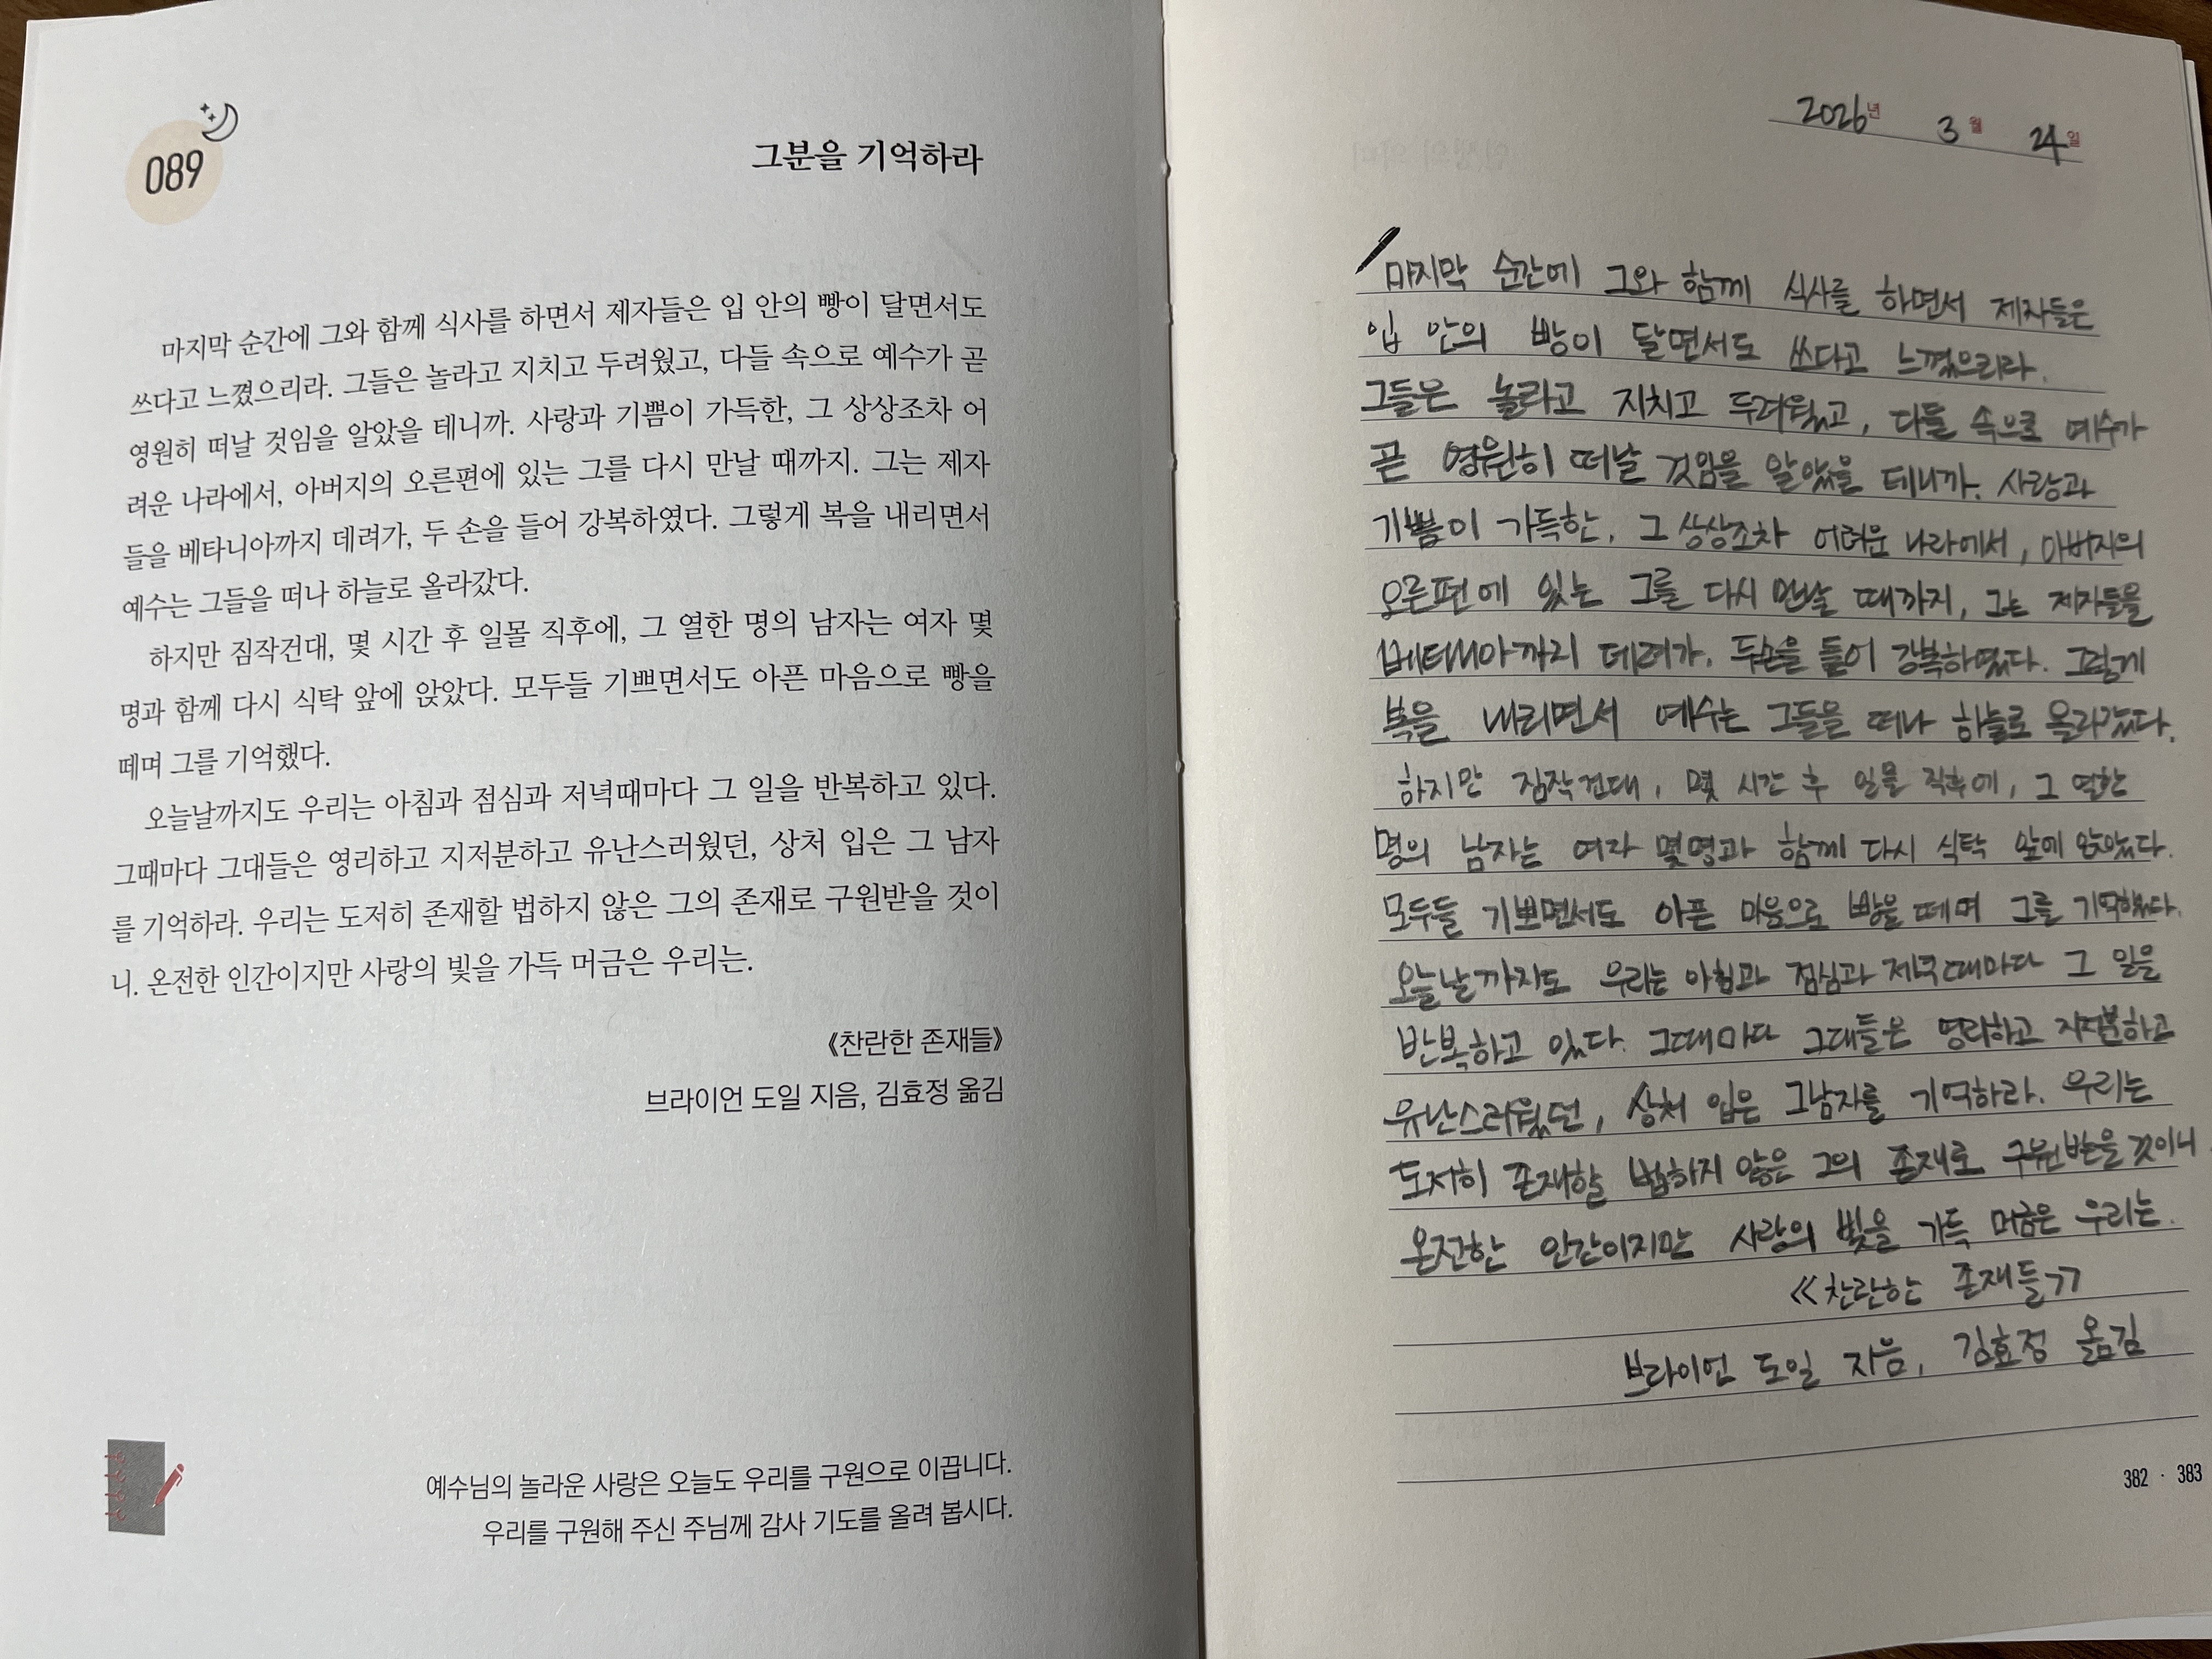 089
그분을 기억하라
마지막 순간에 그와 함께 식사를 하면서 제자들은 입 안의 빵이 달면서도
쓰다고 느꼈으리라. 그들은 놀라고 지치고 두려웠고, 다들 속으로 예수가 곧
영원히 떠날 것임을 알았을 테니까. 사랑과 기쁨이 가득한, 그 상상조차 어
려운 나라에서, 아버지의 오른편에 있는 그를 다시 만날 때까지. 그는 제자
들을 베타니아까지 데려가, 두 손을 들어 강복하였다. 그렇게 복을 내리면서
예수는 그들을 떠나 하늘로 올라갔다.
하지만 짐작건대, 몇 시간 후 일몰 직후에, 그 열한 명의 남자는 여자 몇
명과 함께 다시 식탁 앞에 앉았다. 모두들 기쁘면서도 아픈 마음으로 빵을
떼며 그를 기억했다.
오늘날까지도 우리는 아침과 점심과 저녁때마다 그 일을 반복하고 있다.
그때마다 그대들은 영리하고 지저분하고 유난스러웠던, 상처 입은 그 남자
를 기억하라. 우리는 도저히 존재할 법하지 않은 그의 존재로 구원받을 것이
니. 온전한 인간이지만 사랑의 빛을 가득 머금은 우리는.
《찬란한 존재들》
브라이언 도일 지음, 김효정 옮김
예수님의 놀라운 사랑은 오늘도 우리를 구원으로 이끕니다.
우리를 구원해 주신 주님께 감사 기도를 올려 봅시다.
2026년 3월 24일
마지막 순간에 그와 함께 식사를 하면서 제자들은
입 안의 빵이 달면서도 쓰다고 느꼈으리라.
그들은 놀라고 지치고 두려웠고, 다들 속으로 예수가
곧 영원히 떠날 것임을 알았을 테니까. 사랑과
기쁨이 가득한, 그 상상조차 어려운 나라에서, 아버지의
오른편에 있는 그를 다시 만날 때까지, 그는 제자들을
베타니아까지 데려가, 두손을 들어 강복하였다. 그렇게
복을 내리면서 예수는 그들을 떠나 하늘로 올라갔다.
하지만 짐작건대, 몇 시간 후 일몰 직후에, 그 열한
명의 남자는 여자 몇명과 함께 다시 식탁 앞에 앉았다.
모두들 기쁘면서도 아픈 마음으로 빵을 떼며 그를 기억했다.
오늘날까지도 우리는 아침과 점심과 저녁때마다 그 일을
반복하고 있다. 그때마다 그대들은 영리하고 지저분하고
유난스러웠던, 상처 입은 그남자를 기억하라. 우리는
도저히 존재할 법하지 않은 그의 존재로 구원받을 것이니.
온전한 인간이지만 사랑의 빛을 가득 머금은 우리는.
《찬란한 존재들》
브라이언 도일 지음, 김효정 옮김
382 · 383